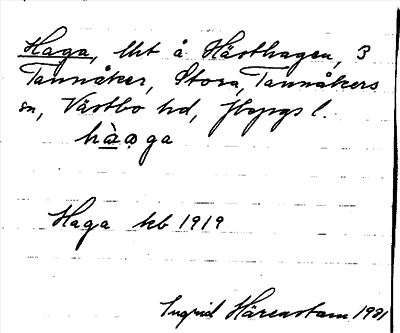 Haga, lht å Hästhagen, 3
Tannåker, Stora, Tannåkers
sn, Västbo hd, Jbpgs l.
hàạga
Haga kb 1919
Ingrid Härenstam 1931